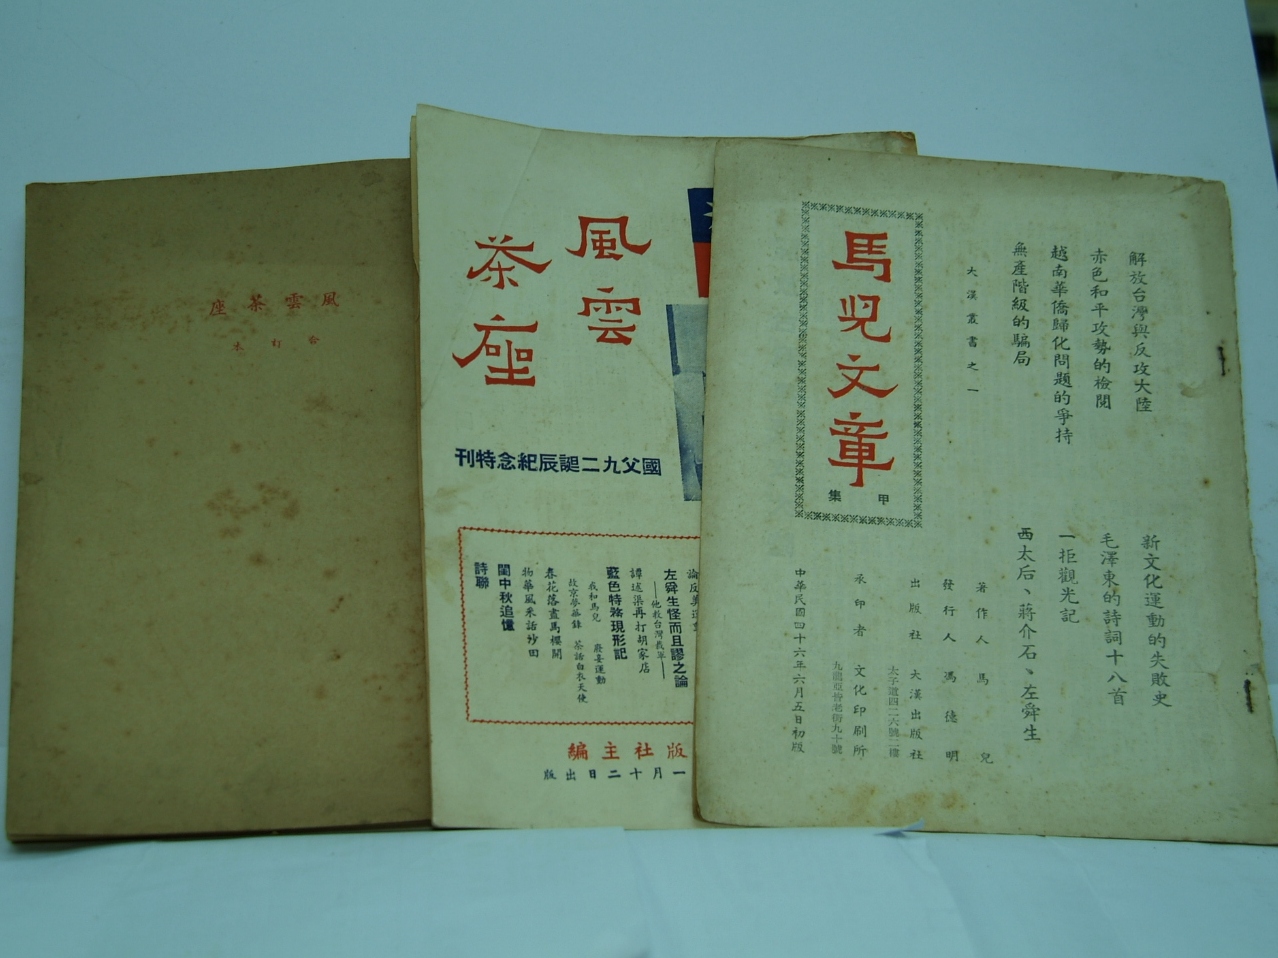 風雲茶座
合訂本
風雲
茶座
國父九二誕辰紀念特刊
左舜生怪而且謬之論
——他教台灣裁軍——
譚述渠再打胡家店
藍色特務現形記
我和馬兒
廢妾運動
故京夢華錄
茶話白衣天使
春花落盡馬櫻開
物華風采話炒田
閨中秋追憶
詩聯
版社主編
一月十二日出版
解放台灣與反攻大陸
赤色和平攻勢的檢閱
越南華僑歸化問題的爭持
無產階級的騙局
新文化運動的失敗史
毛澤東的詩詞十八首
一拒觀光記
西太后、蔣介石、左舜生
大漢叢書之一
馬兒文章
甲集
著作人 馬兒
發行人 馮德明
出版社 大漢出版社
太子道四二六號二樓
承印者 文化印刷所
九龍亞皆老街九十號
中華民國四十六年六月五日初版